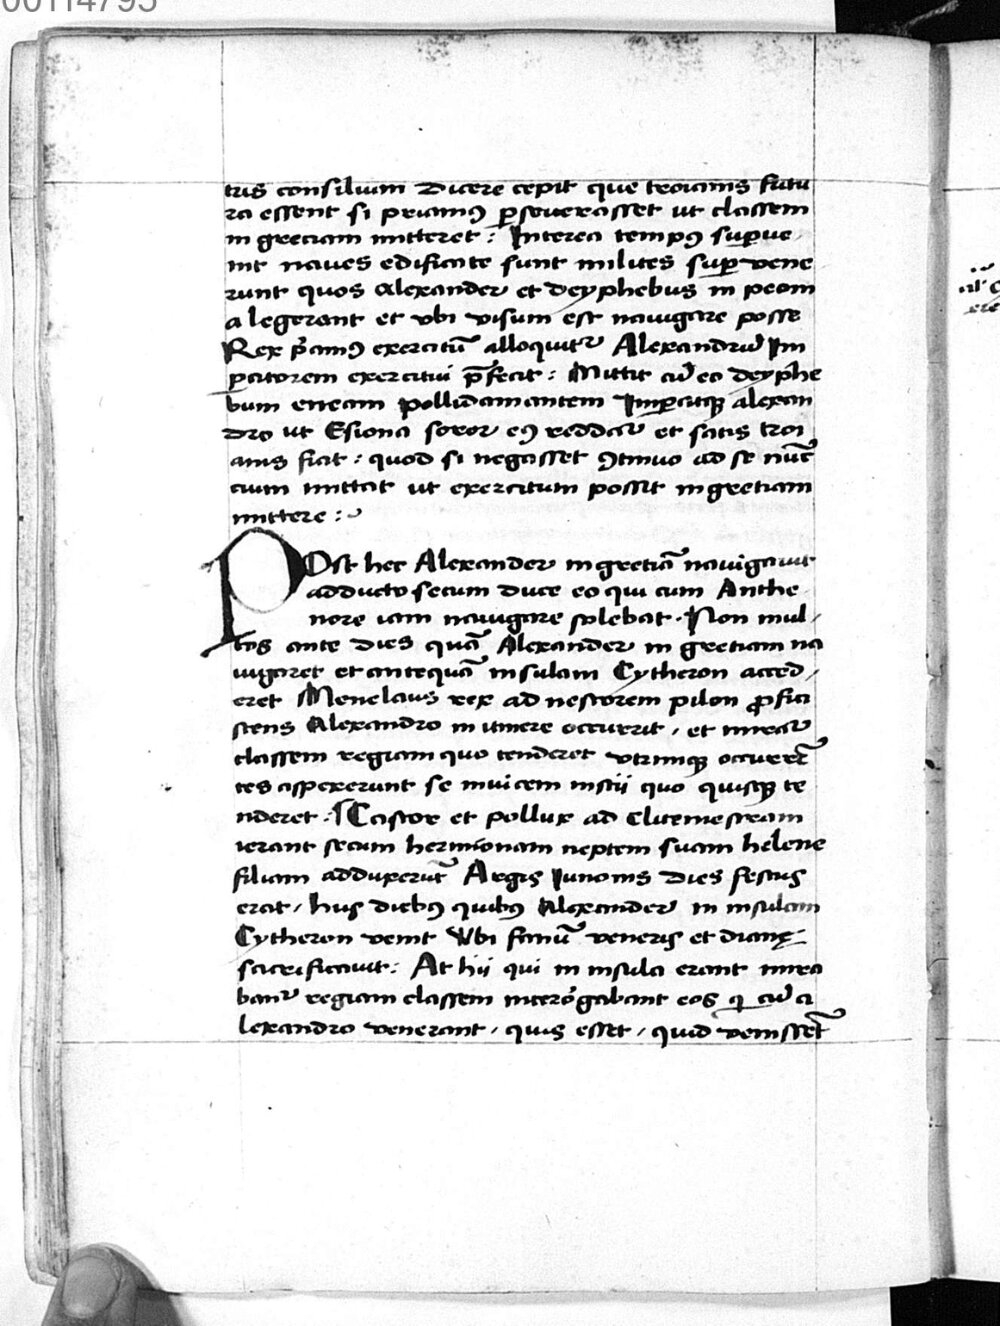 00114795
tris consilium dicere cepit que troianis futu
ra essent si priamꝰ ꝑseuerasset ut classem
in greciam mitteret : Interea tempꝰ suꝑue
nit naues edificate sunt milites suꝑ vene
runt quos Alexander et deyphebus in peoni
a legerant et vbi visum est nauigare posse
Rex p̄amꝰ exercitū alloquit᷑ Alexandrū Im
ꝑatorem exercitui p̄fecit : Mittit cū eo deyphe
bum eneam pollidamantem Imꝑatqꝫ alexan
dro ut Esiona soror eꝰ reddat᷑ et satis troi
anis fiat : quod si negasset ꝯtinuo ad se nūt
cium mittat ut exercitum possit in gretiam
mittere :
POst hec Alexander in gretiā nauigauit
adducto secum duce eo qui cum Anthe
nore iam nauigare solebat . Non mul
tos ante dies quā Alexander in gretiam na
uigaret et antequā insulam Cytheron acced
eret Menelaus rex ad nestorem pilon ꝓfici
scens Alexandro in itinere occurrit , et mirat᷑
classem regiam quo tenderet vtrimqꝫ occurrē
tes aspexerunt se inuicem inscii quo quisqꝫ te
nderet . Castor et pollux ad clitemestram
ierant secum hermionam neptem suam helene
filiam adduxerūt Argis Iunonis dies festus
erat , hijs diebꝰ quibꝰ Alexander in insulam
Cytheron venit Vbi fanū veneris et dianę
sacrificauit : At hii qui in insula erant mira
bant᷑ regiam classem interrogabant eos qi cū a
lexandro venerant , quis esset , quid venisset